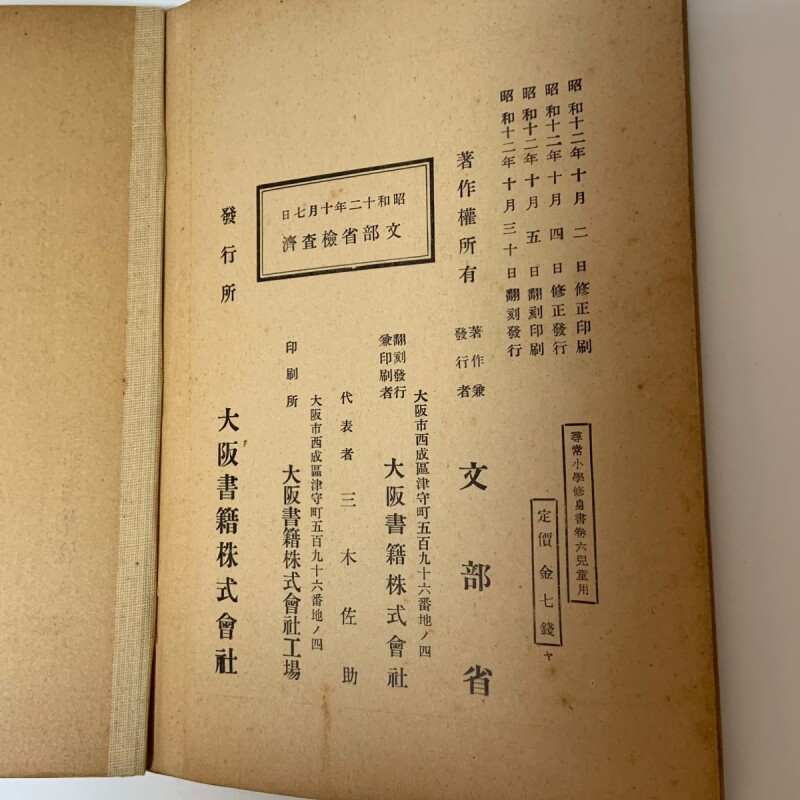 昭和十二年十月二日修正印刷
昭和十二年十月四日修正發行
昭和十二年十月五日翻刻印刷
昭和十二年十月三十日翻刻發行
尋常小學修身書卷六兒童用
定價金七錢
ヤ
著作權所有
著作兼
發行者
文部省
昭和十二年十月七日
文部省檢査濟
大阪市西成區津守町五百九十六番地ノ四
翻刻發行
兼印刷者
大阪書籍株式會社
代表者 三木佐助
大阪市西成區津守町五百九十六番地ノ四
印刷所
大阪書籍株式會社工場
發行所
大阪書籍株式會社